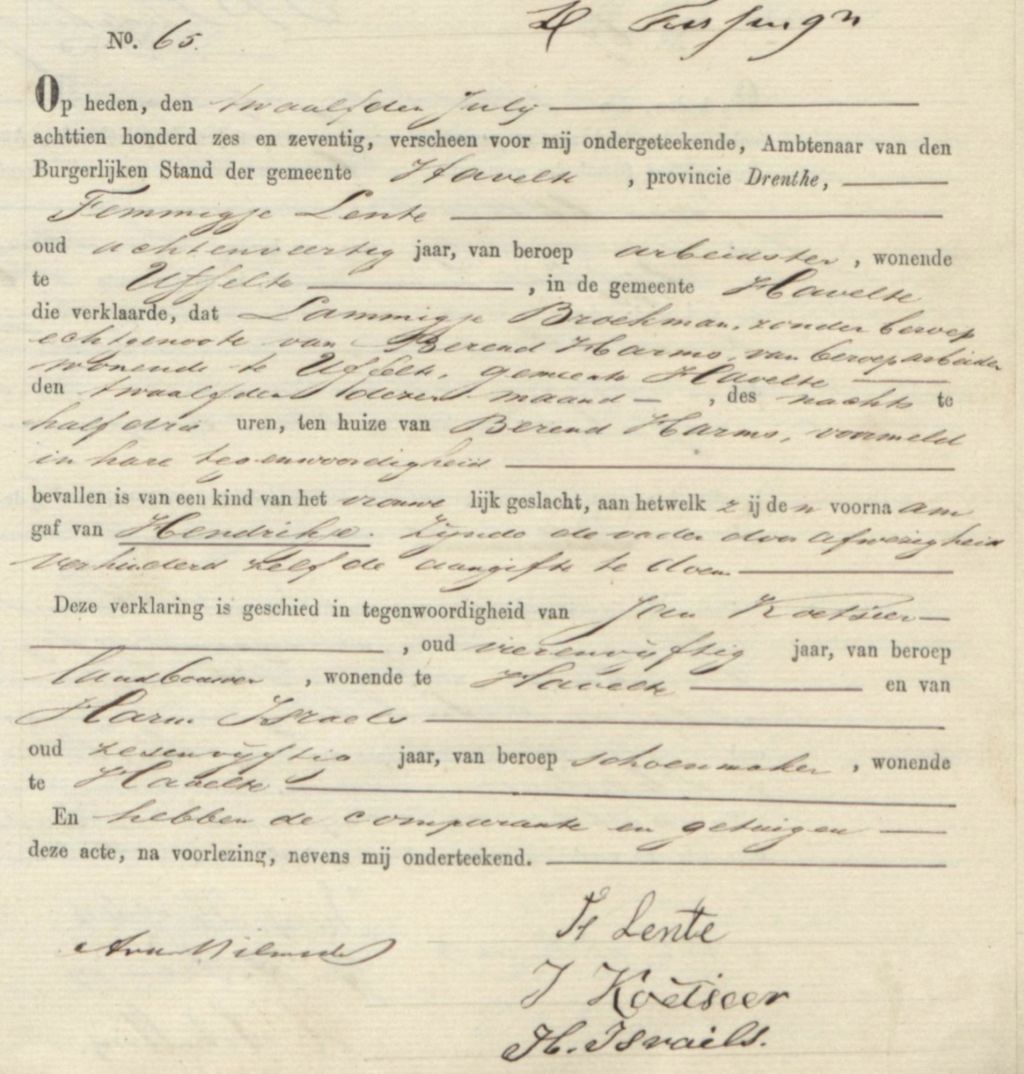 No. 65.
Op heden, den twaalfden July
achttien honderd zes en zeventig, verscheen voor mij ondergeteekende, Ambtenaar van den
Burgerlijken Stand der gemeente Havelte, provincie Drenthe,
Femmigje Lente
oud achtenveertig jaar, van beroep arbeidster, wonende
te Uffelte, in de gemeente Havelte
die verklaarde, dat Lammigje Broekman, zonder beroep
echtgenoote van Berend Harms, van beroep arbeider
wonende te Uffelte, gemeente Havelte
den twaalfden dezer maand, des nachts te
half drie uren, ten huize van Berend Harms, voormeld
in hare tegenwoordigheid
bevallen is van een kind van het vrouwelijk geslacht, aan hetwelk zij den voornaam
gaf van Hendrikje. Zijnde de vader door afwezigheid
verhinderd zelf de aangifte te doen.
Deze verklaring is geschied in tegenwoordigheid van Jan Koetsier
, oud vierenvijftig jaar, van beroep
landbouwer, wonende te Havelte en van
Harm Israels
oud zesenvijftig jaar, van beroep schoenmaker, wonende
te Havelte
En hebben de comparante en getuigen
deze acte, na voorlezing, nevens mij onderteekend.
F Lente
J Koetseer
H. Israels.